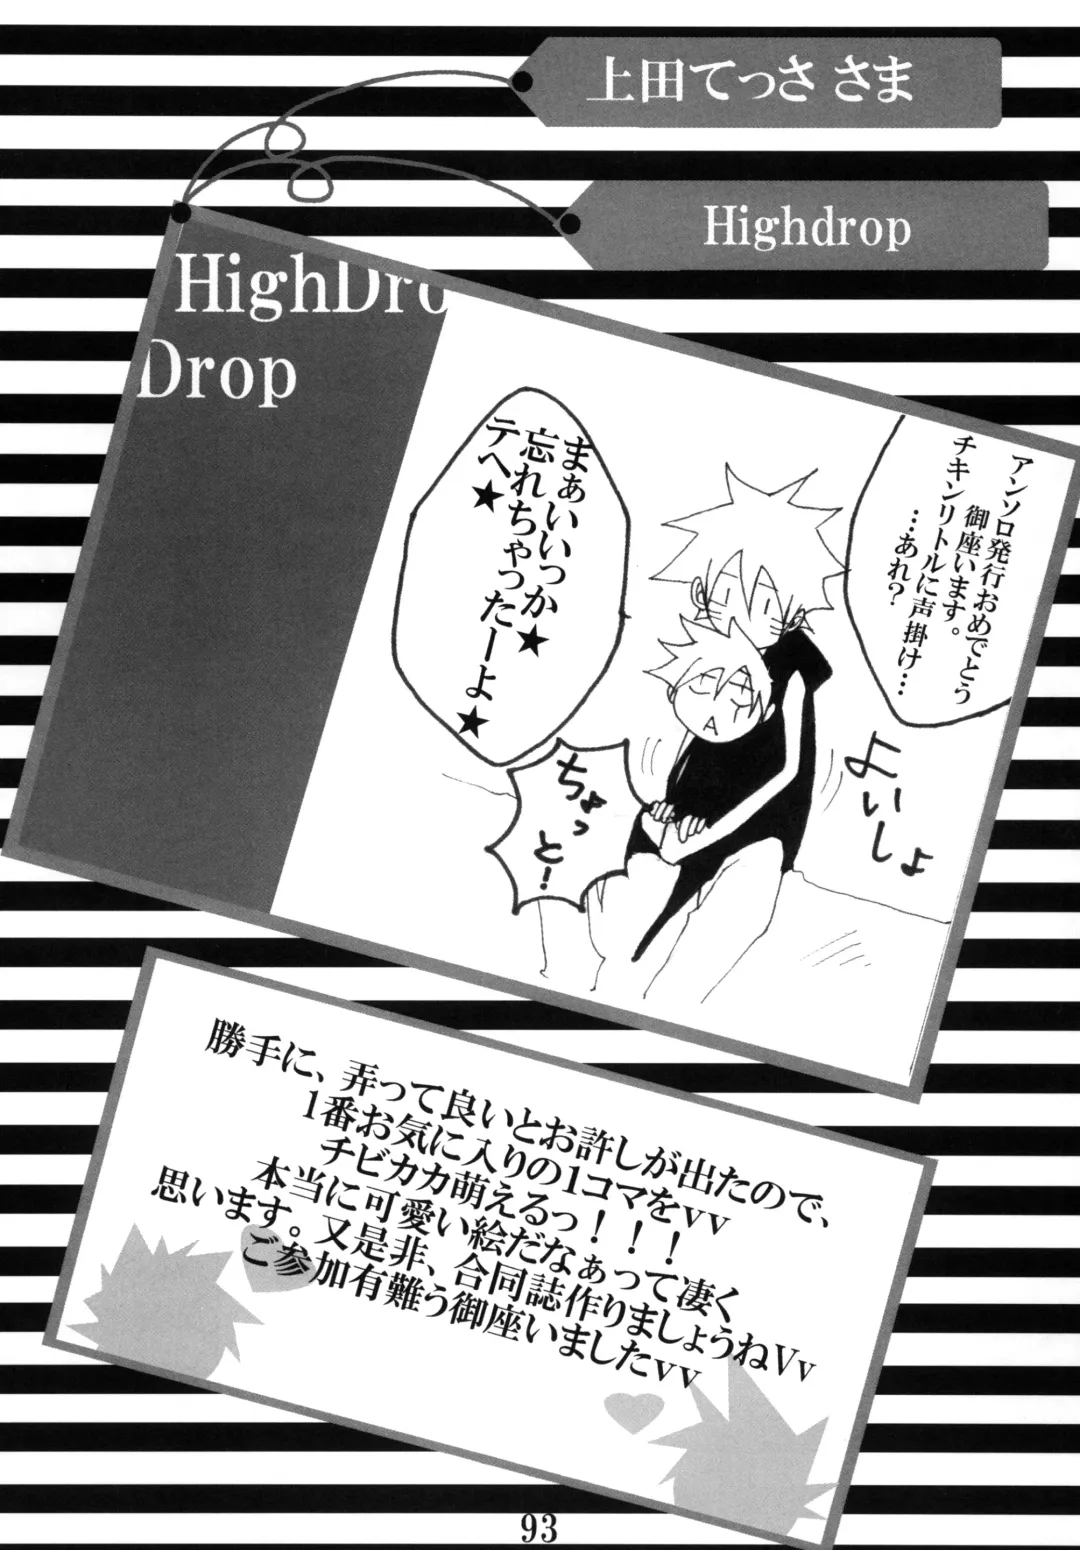 上田てっさ さま
Highdrop
HighDro
Drop
アンソロ発行おめでとう
御座います。
チキンリトルに声掛け…
…あれ？
まぁいいっか★
忘れちゃったーよ★
テヘ★
よいしょ
ちょっと!
勝手に、弄って良いとお許しが出たので、
1番お気に入りの1コマをvv
チビカカ萌えるっ！！！
本当に可愛い絵だなぁって凄く
思います。又是非、合同誌作りましょうねVv
ご参加有難う御座いましたvv
93